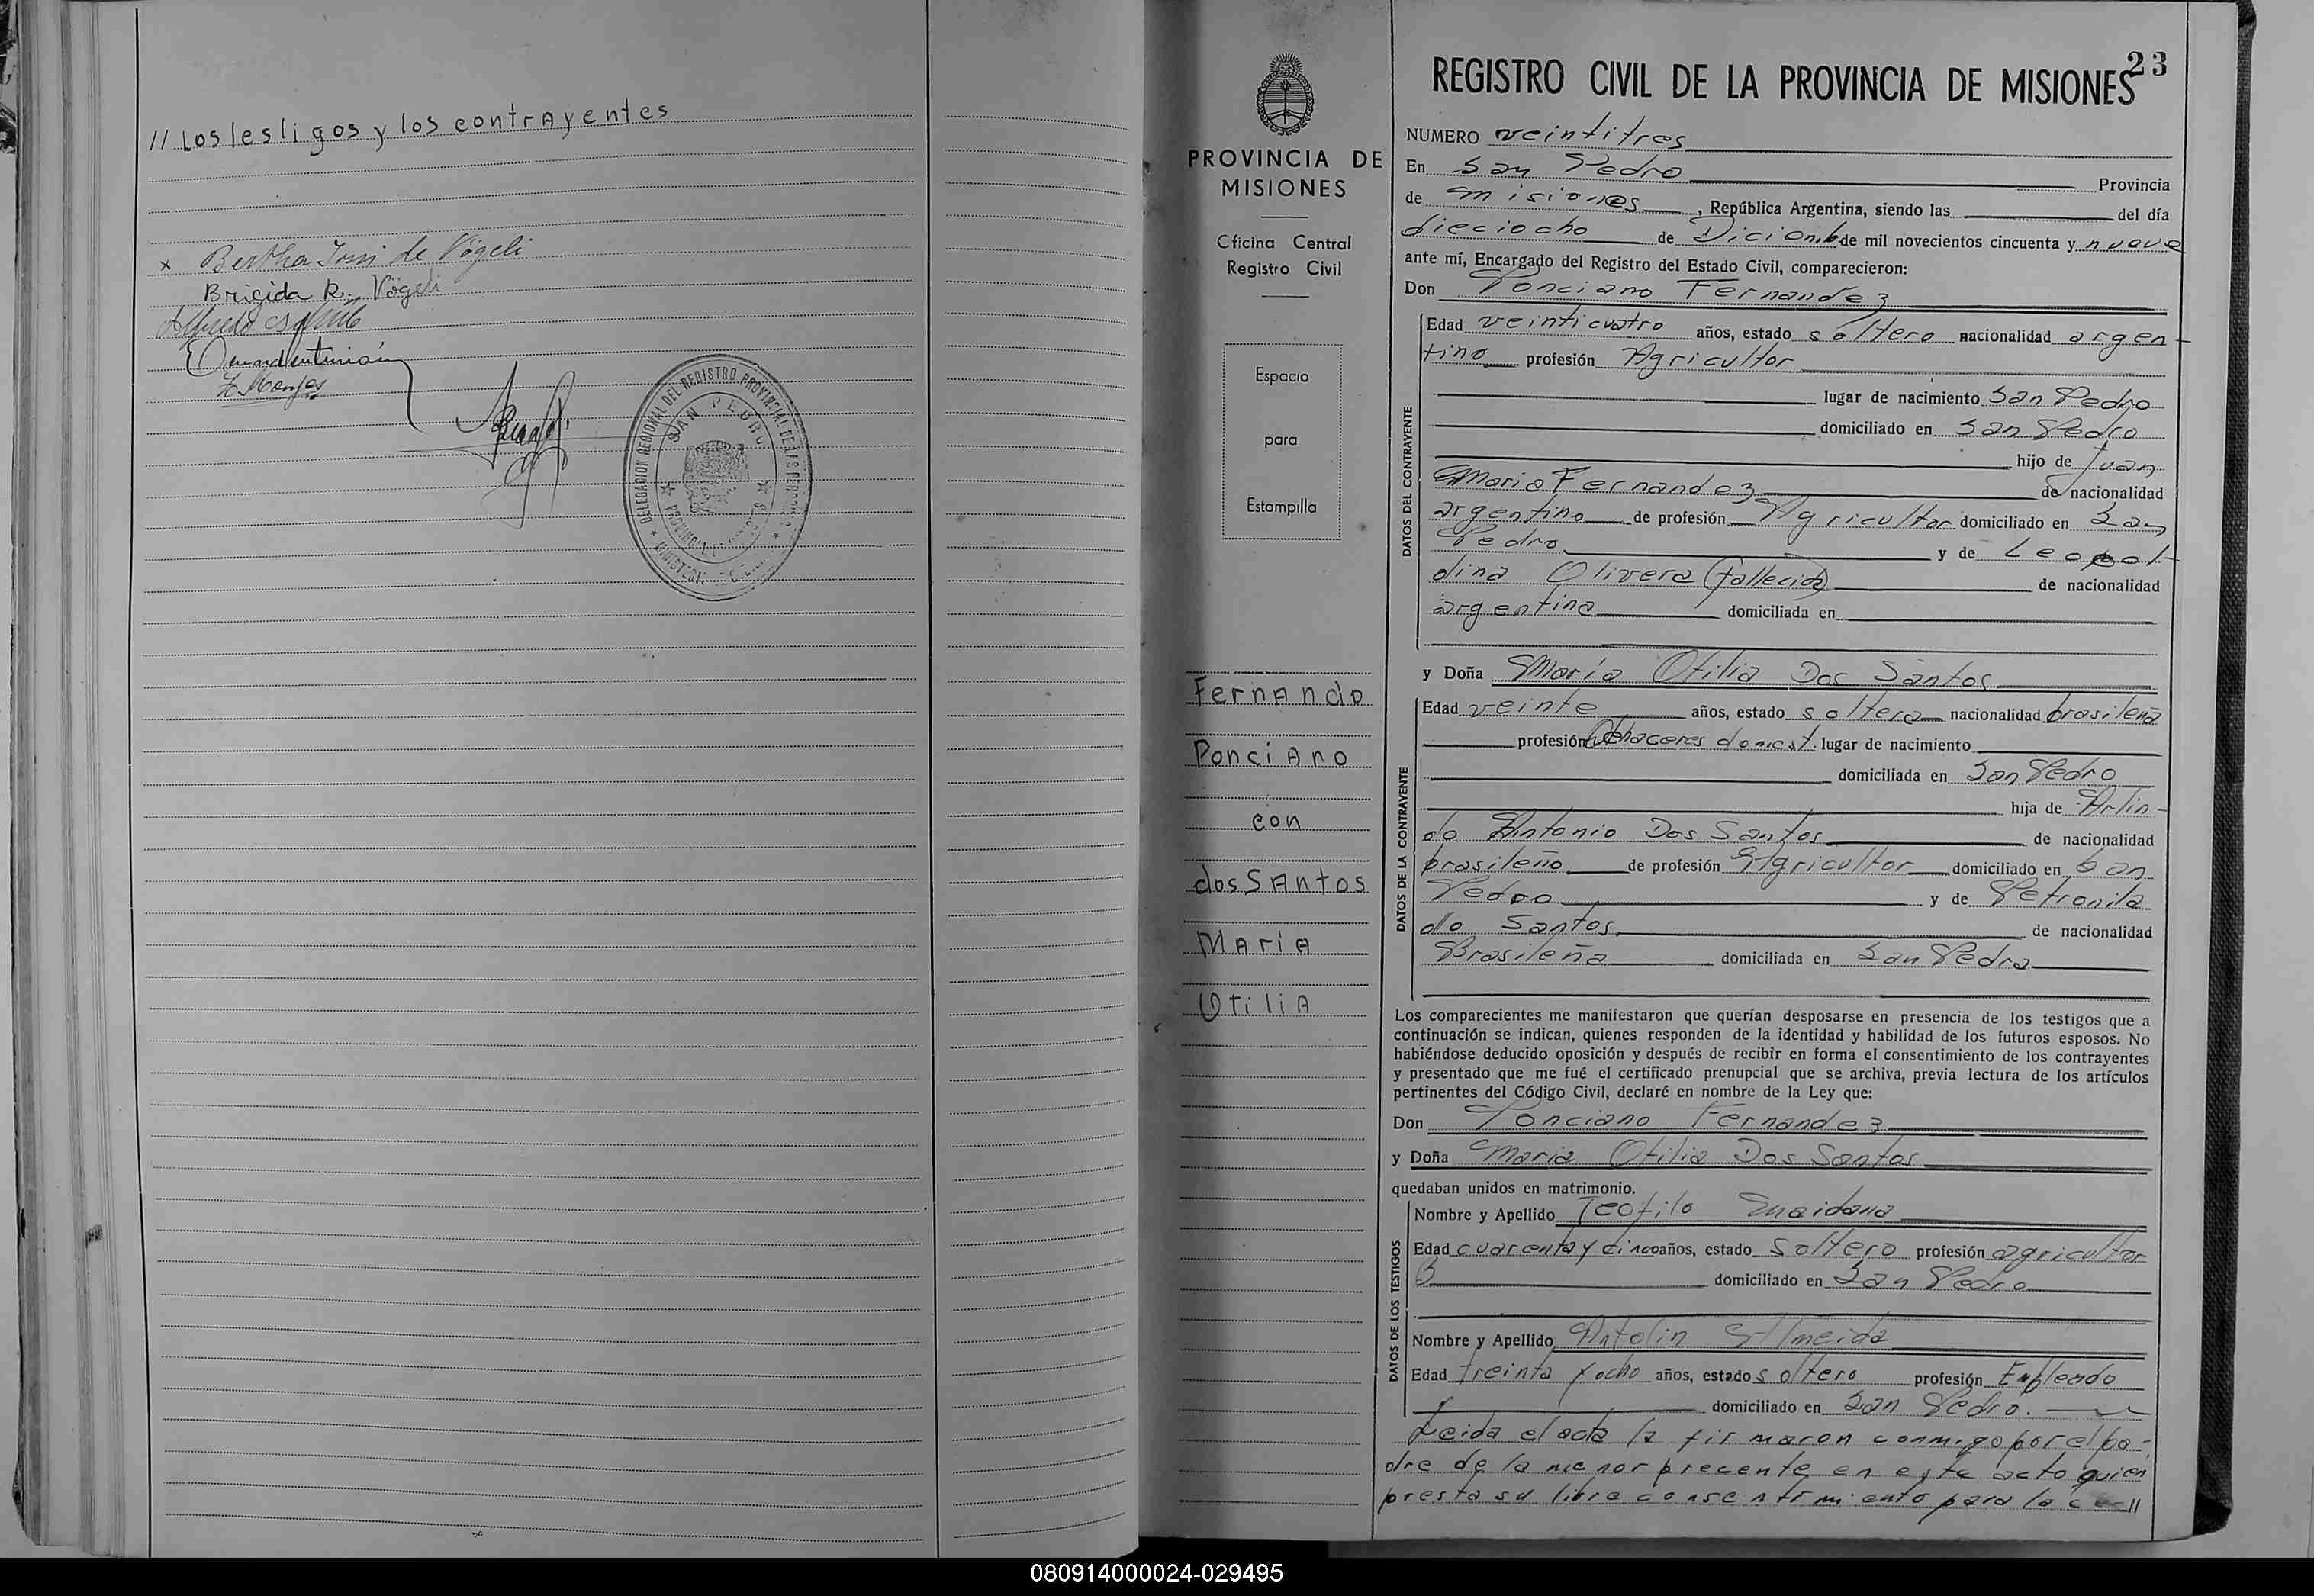 // Los testigos y los contrayentes
x Bertha Joni de Vögeli
Brigida R. Vögeli
DELEGACION REGIONAL DEL REGISTRO PROVINCIAL DE LAS PERSONAS
SAN PEDRO
PROVINCIA
23
REGISTRO CIVIL DE LA PROVINCIA DE MISIONES
PROVINCIA DE
MISIONES
Oficina Central
Registro Civil
Espacio
para
Estampilla
Fernando
Ponciano
con
dos Santos
María
Otilia
NUMERO veintitres
En San Pedro Provincia
de Misiones, República Argentina, siendo las del día
dieciocho de Diciembre de mil novecientos cincuenta y nueve
ante mí, Encargado del Registro del Estado Civil, comparecieron:
Don Ponciano Fernandez
DATOS DEL CONTRAYENTE
Edad veinticuatro años, estado soltero nacionalidad argen-
tino profesión Agricultor
lugar de nacimiento San Pedro
domiciliado en San Pedro
hijo de Juan
Maria Fernandez de nacionalidad
argentino de profesión Agricultor domiciliado en San
Pedro y de Leopol-
dina Olivera (fallecida) de nacionalidad
argentina domiciliada en
y Doña María Otilia Dos Santos
DATOS DE LA CONTRAYENTE
Edad veinte años, estado soltera nacionalidad brasileña
profesión Qehaceres domest. lugar de nacimiento
domiciliada en San Pedro
hija de Arlin-
do Antonio Dos Santos de nacionalidad
brasileño de profesión Agricultor domiciliado en San
Pedro y de Petronila
do Santos, de nacionalidad
Brasileña domiciliada en San Pedro
Los comparecientes me manifestaron que querían desposarse en presencia de los testigos que a
continuación se indican, quienes responden de la identidad y habilidad de los futuros esposos. No
habiéndose deducido oposición y después de recibir en forma el consentimiento de los contrayentes
y presentado que me fué el certificado prenupcial que se archiva, previa lectura de los artículos
pertinentes del Código Civil, declaré en nombre de la Ley que:
Don Ponciano Fernandez
y Doña Maria Otilia Dos Santos
quedaban unidos en matrimonio.
DATOS DE LOS TESTIGOS
Nombre y Apellido Teofilo Maidana
Edad cuarenta y cinco años, estado soltero profesión agricultor
domiciliado en San Pedro
Nombre y Apellido Antolin Almeida
Edad treinta y ocho años, estado soltero profesión Empleado
domiciliado en San Pedro.
Leida el acta la firmaron conmigo por el pa-
dre de la menor precente en este acto quien
presta su libre consentimiento para la ce//
080914000024-029495